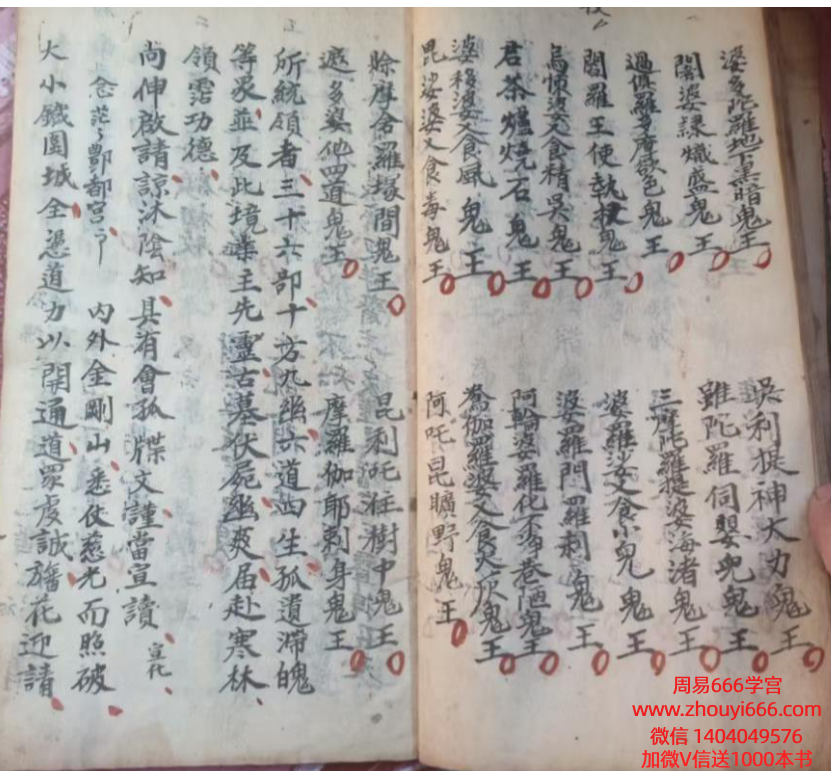 婆多陀羅地下黑暗鬼王
吳利提神大力鬼王
闇婆隸熾盛鬼王
雖陀羅伺嬰兒鬼王
過俱羅多魔欲色鬼王
三摩陀羅提婆海渚鬼王
閻羅王使執杖鬼王
婆羅沙叉食小兒鬼王
烏悚婆叉食精炁鬼王
婆羅門羅刹鬼王
君茶爐燒石鬼王
阿輪婆羅化不淨巷陋鬼王
婆移婆叉食風鬼王
為伽羅婆叉食火灰鬼王
毘娑婆叉食毒鬼王
阿吒昆曠野鬼王
賒摩舍羅塚間鬼王
昆利吒住樹中鬼王
遮多婆他四道鬼王
摩羅伽耶剌身鬼王
所統領者三十六部十方九幽六道四生孤遺滯魄
等衆並及此境業主先靈古墓伏屍幽爽届赴寒林
領霑功德
尚伸啟請諒沐陰知具有會孤牒文謹當宣讀
宣化
念茫〻酆都宮
內外金剛山悉仗慈光而照破
大小鐵圍城全憑道力以開通道眾虔誠旛花迎請
周易666学宫
www.zhouyi666.com
微信 1404049576
加微V信送1000本书